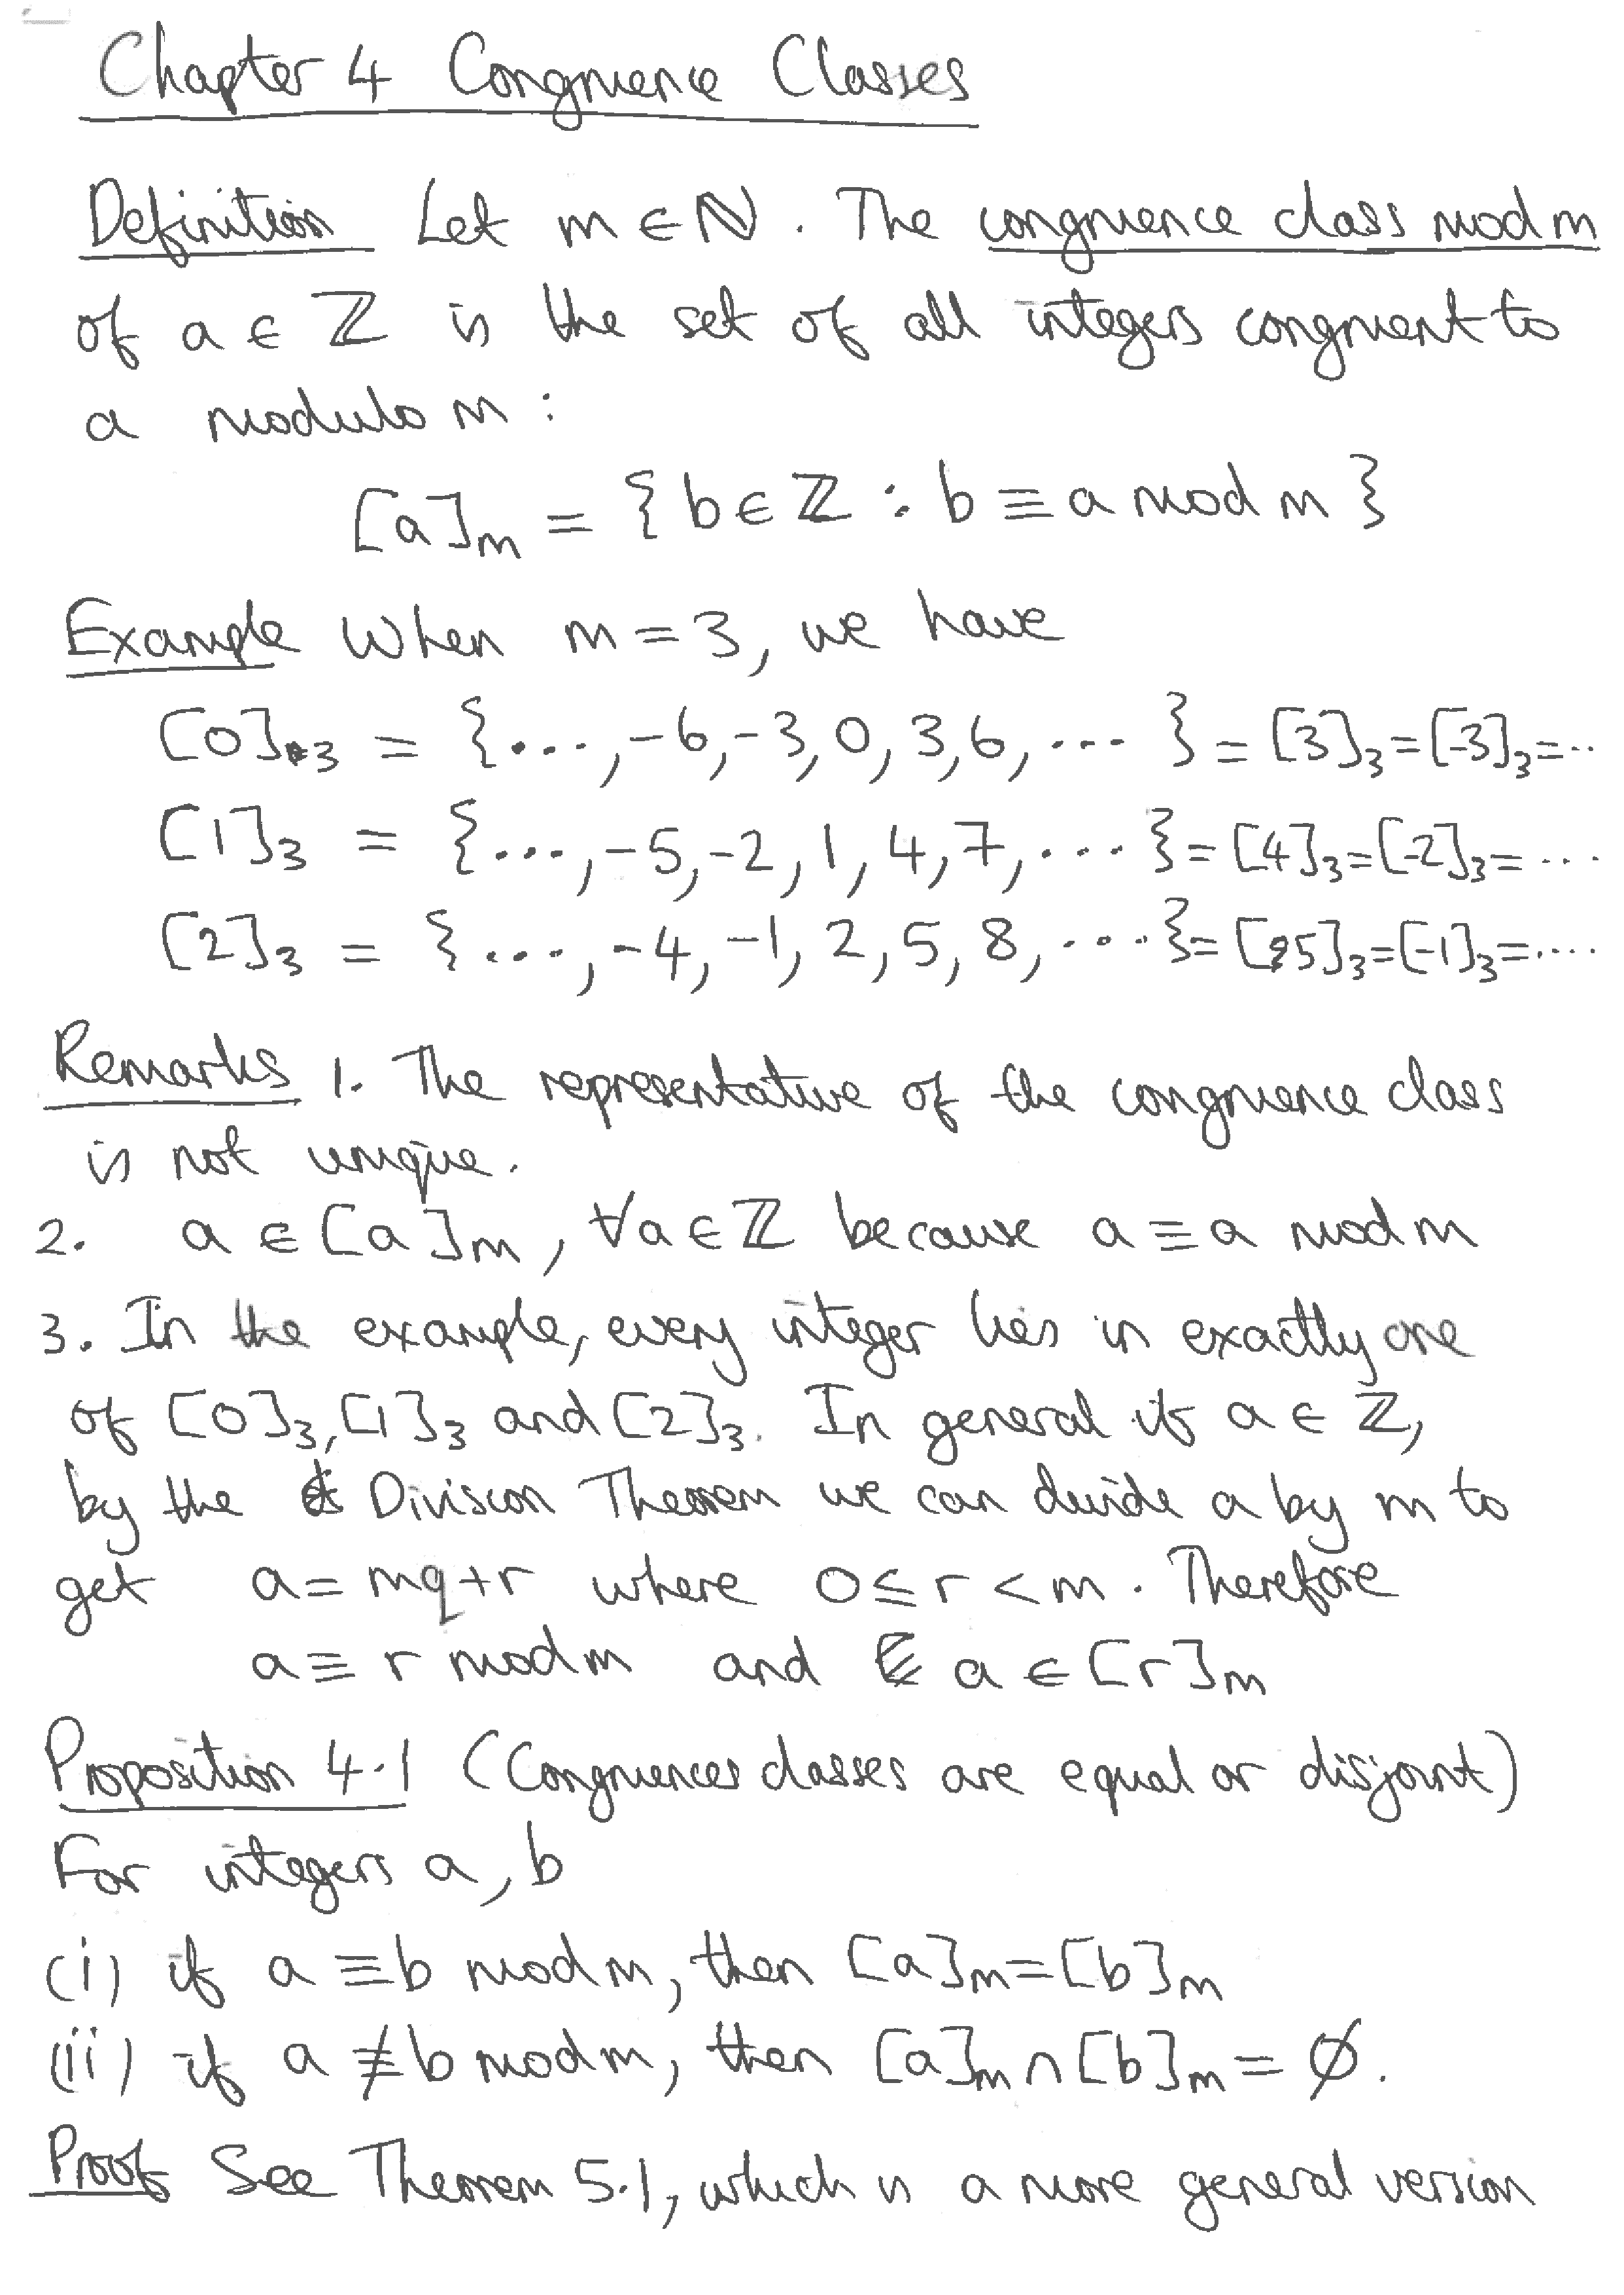 Chapter 4 Congruence Classes
Definition Let m ∈ ℕ. The congruence class mod m
of a ∈ ℤ is the set of all integers congruent to
a modulo m :
[a]ₘ = { b ∈ ℤ : b ≡ a mod m }
Example When m = 3, we have
[0]₃ = { ..., -6, -3, 0, 3, 6, ... } = [3]₃ = [-3]₃ = ...
[1]₃ = { ..., -5, -2, 1, 4, 7, ... } = [4]₃ = [-2]₃ = ...
[2]₃ = { ..., -4, -1, 2, 5, 8, ... } = [5]₃ = [-1]₃ = ...
Remarks 1. The representative of the congruence class
is not unique.
2. a ∈ [a]ₘ, ∀a ∈ ℤ because a ≡ a mod m
3. In the example, every integer lies in exactly one
of [0]₃, [1]₃ and [2]₃. In general if a ∈ ℤ,
by the Division Theorem we can divide a by m to
get a = mq + r where 0 ≤ r < m. Therefore
a ≡ r mod m and a ∈ [r]ₘ
Proposition 4.1 (Congruences classes are equal or disjoint)
For integers a, b
(i) if a ≡ b mod m, then [a]ₘ = [b]ₘ
(ii) if a ≢ b mod m, then [a]ₘ ∩ [b]ₘ = ∅.
Proof See Theorem 5.1, which is a more general version